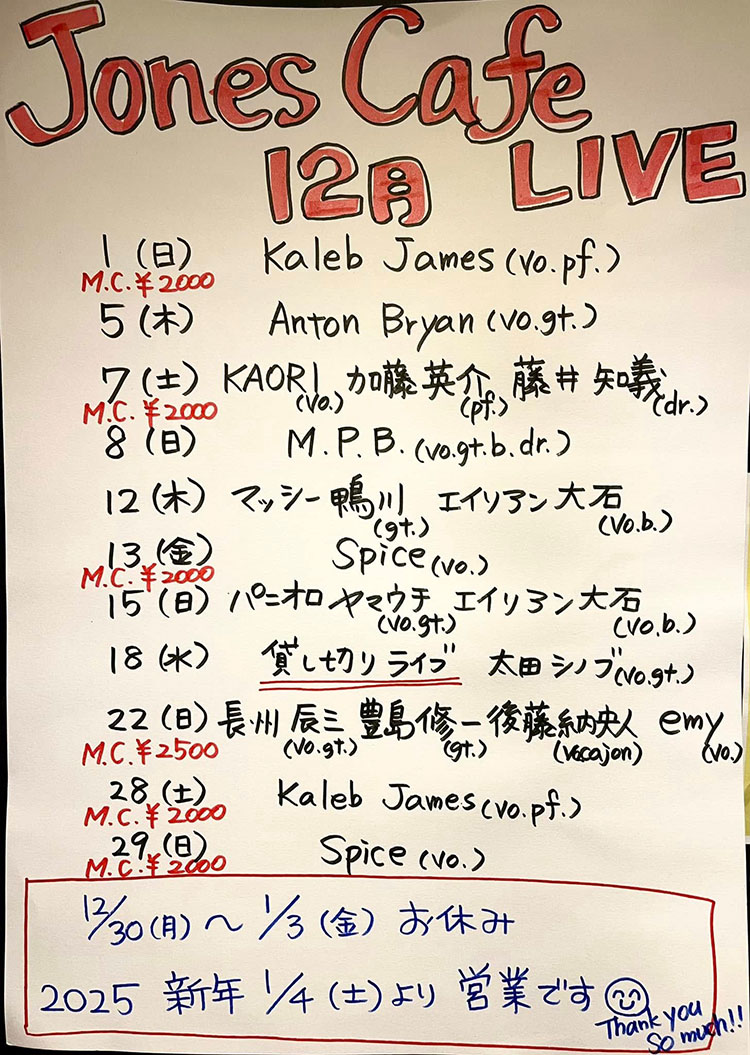 Jones Cafe
12月 LIVE
1 (日) Kaleb James (vo.pf.)
M.C.¥2000
5 (木) Anton Bryan (vo.gt.)
7 (土) KAORI 加藤 英介 藤井 知義
(vo.) (pf.) (dr.)
M.C.¥2000
8 (日) M.P.B. (vo.gt.b.dr.)
12 (木) マッシー鴨川 エイリアン大石
(gt.) (vo.b.)
13 (金) Spice (vo.)
M.C.¥2000
15 (日) パニオロ ヤマウチ エイリアン大石
(vo.gt.) (vo.b.)
18 (水) 貸し切りライブ 太田シノブ (vo.gt.)
22 (日) 長州 辰三 豊島 修一 後藤 emy
(vo.gt.) (gt.) (vo.cajon) (vo.)
M.C.¥2500
28 (土) Kaleb James (vo.pf.)
M.C.¥2000
29 (日) Spice (vo.)
M.C.¥2000
12/30 (月) ～ 1/3 (金) お休み
2025 新年 1/4 (土) より 営業です
Thank you
So much!!